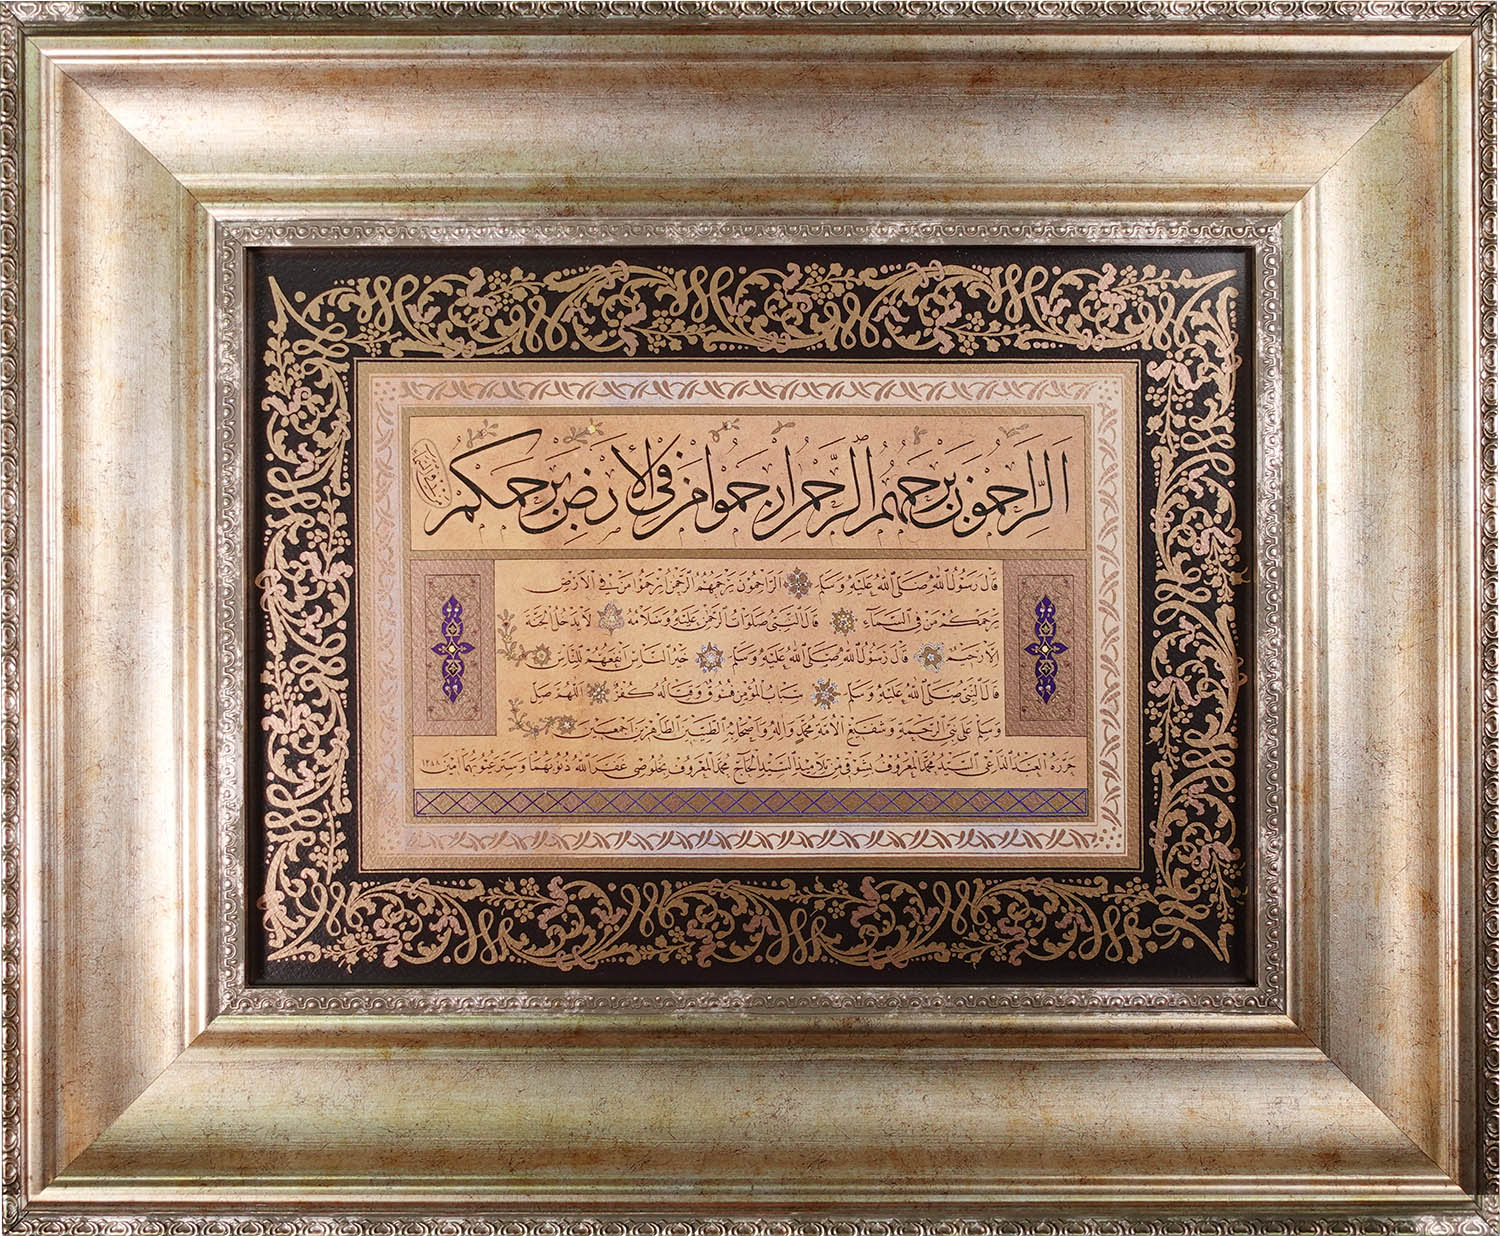 الراحمون يرحمهم الرحمن ارحموا من في الأرض يرحمكم
من في السماء
قال رسول الله صلى الله عليه وسلم الراحمون يرحمهم الرحمن ارحموا من في الأرض
يرحمكم من في السماء قال النبي صلوات الرحمن عليه وسلامه لا يدخل الجنة
الا رحيم قال رسول الله صلى الله عليه وسلم خير الناس انفعهم للناس
قال النبي صلى الله عليه وسلم سباب المؤمن فسوق وقتاله كفر اللهم صل
وسلم على نبي الرحمة وشفيع الأمة محمد وآله واصحابه الطيبين الطاهرين اجمعين
حرره العبد الداعي السيد محمد المعروف بشوقي من تلاميذ السيد الحاج محمد المعروف بخلوصي غفر الله ذنوبهما وستر عيوبهما آمين ١٢٨٨